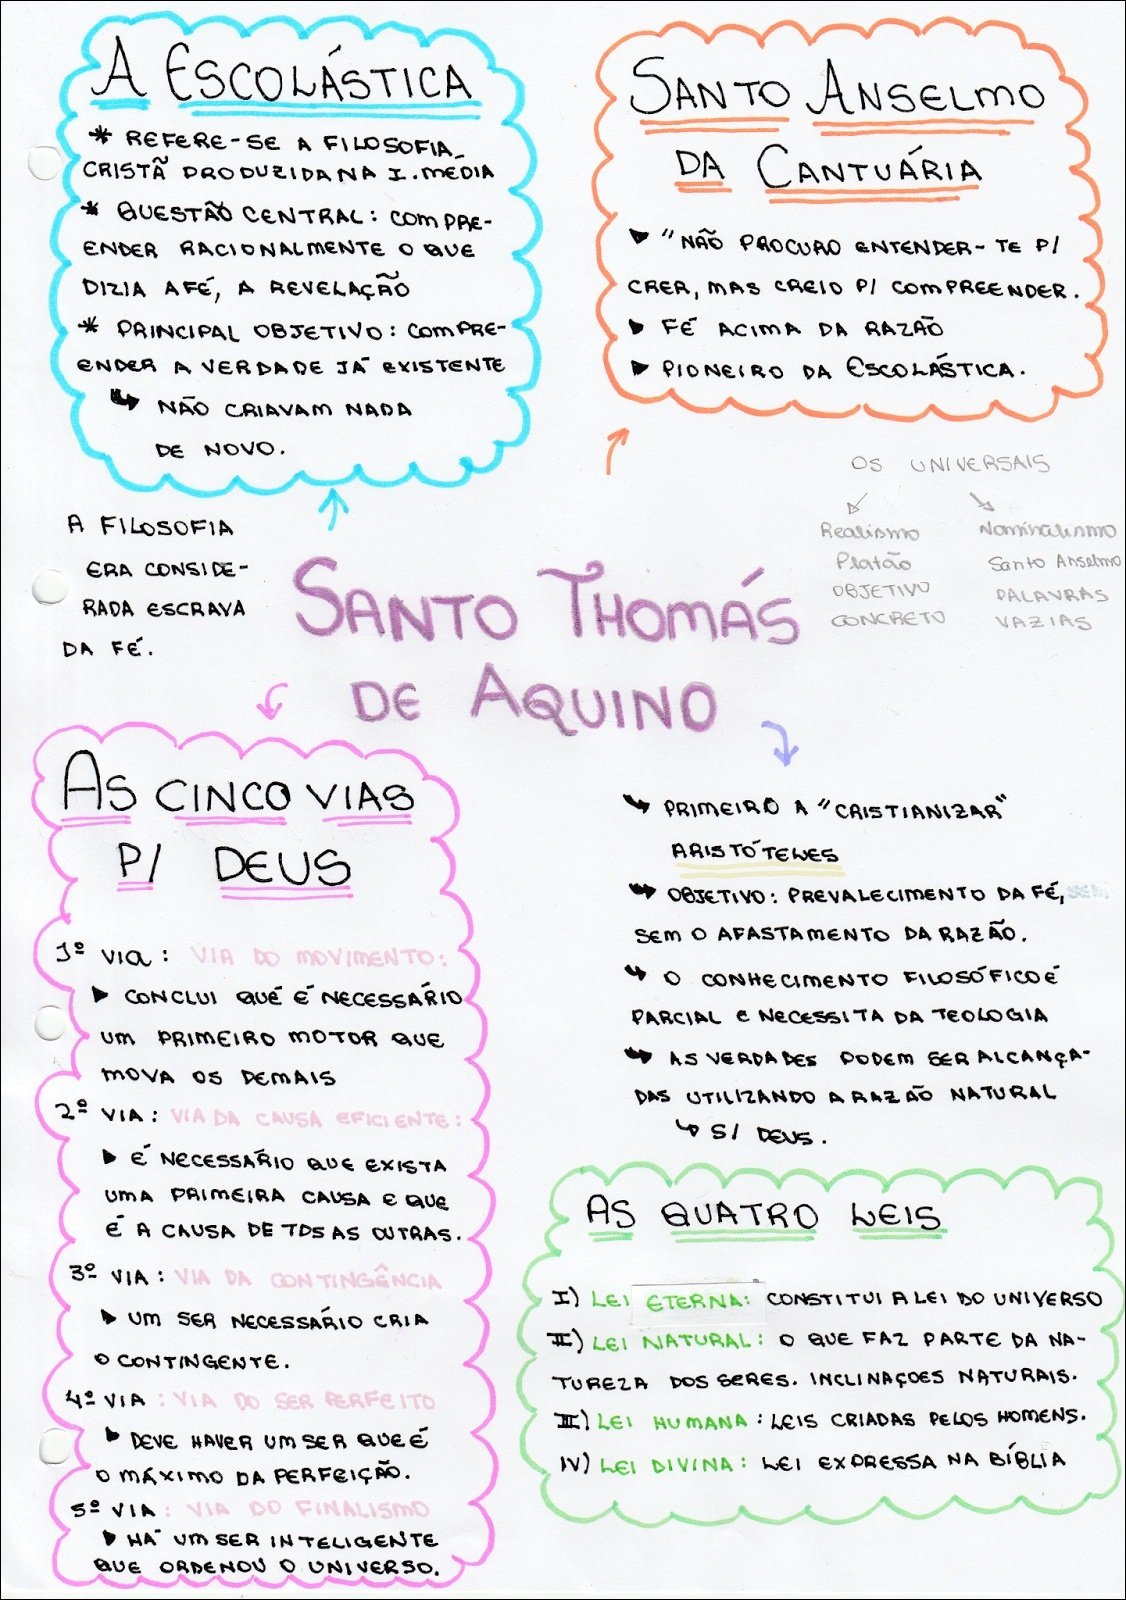 A ESCOLÁSTICA
* REFERE-SE A FILOSOFIA
CRISTÃ PRODUZIDA NA I. MÉDIA
* QUESTÃO CENTRAL: COMPRE-
ENDER RACIONALMENTE O QUE
DIZIA A FÉ, A REVELAÇÃO
* PRINCIPAL OBJETIVO: COMPRE-
ENDER A VERDADE JÁ EXISTENTE
↳ NÃO CRIAVAM NADA
DE NOVO.
SANTO ANSELMO
DA CANTUÁRIA
▶ "NÃO PROCURO ENTENDER-TE P/
CRER, MAS CREIO P/ COMPREENDER.
▶ FÉ ACIMA DA RAZÃO
▶ PIONEIRO DA ESCOLÁSTICA.
OS UNIVERSAIS
Realismo
Platão
OBJETIVO
CONCRETO
Nominalismo
Santo Anselmo
PALAVRAS
VAZIAS
A FILOSOFIA
ERA CONSIDE-
RADA ESCRAVA
DA FÉ.
SANTO THOMÁS
DE AQUINO
AS CINCO VIAS
P/ DEUS
1º VIA: VIA DO MOVIMENTO:
▶ CONCLUI QUÉ É NECESSÁRIO
UM PRIMEIRO MOTOR QUE
MOVA OS DEMAIS
2º VIA: VIA DA CAUSA EFICIENTE:
▶ É NECESSÁRIO QUE EXISTA
UMA PRIMEIRA CAUSA E QUE
É A CAUSA DE TDS AS OUTRAS.
3º VIA: VIA DA CONTINGÊNCIA
▶ UM SER NECESSÁRIO CRIA
O CONTINGENTE.
4º VIA: VIA DO SER PERFEITO
▶ DEVE HAVER UM SER QUE É
O MÁXIMO DA PERFEIÇÃO.
5º VIA: VIA DO FINALISMO
▶ HÁ UM SER INTELIGENTE
QUE ORDENOU O UNIVERSO.
↳ PRIMEIRO A "CRISTIANIZAR"
ARISTÓTELES
↳ OBJETIVO: PREVALECIMENTO DA FÉ,
SEM O AFASTAMENTO DA RAZÃO.
↳ O CONHECIMENTO FILOSÓFICO É
PARCIAL E NECESSITA DA TEOLOGIA
↳ AS VERDADES PODEM SER ALCANÇA-
DAS UTILIZANDO A RAZÃO NATURAL
↳ S/ DEUS.
AS QUATRO LEIS
I) LEI ETERNA: CONSTITUI A LEI DO UNIVERSO
II) LEI NATURAL: O QUE FAZ PARTE DA NA-
TUREZA DOS SERES. INCLINAÇOES NATURAIS.
III) LEI HUMANA: LEIS CRIADAS PELOS HOMENS.
IV) LEI DIVINA: LEI EXPRESSA NA BÍBLIA